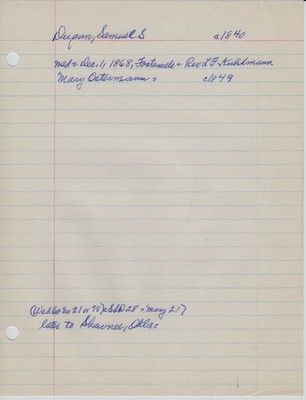 Dugan, Samuel S c1840
med = Dec. 1, 1868, Fontanelle = Rev L F Kuhlmann
"Mary Ostermann = c1849
(Wed Co No 21 or 70) = SSD 28 = Mary 21)
later to Shawnee, Okla =